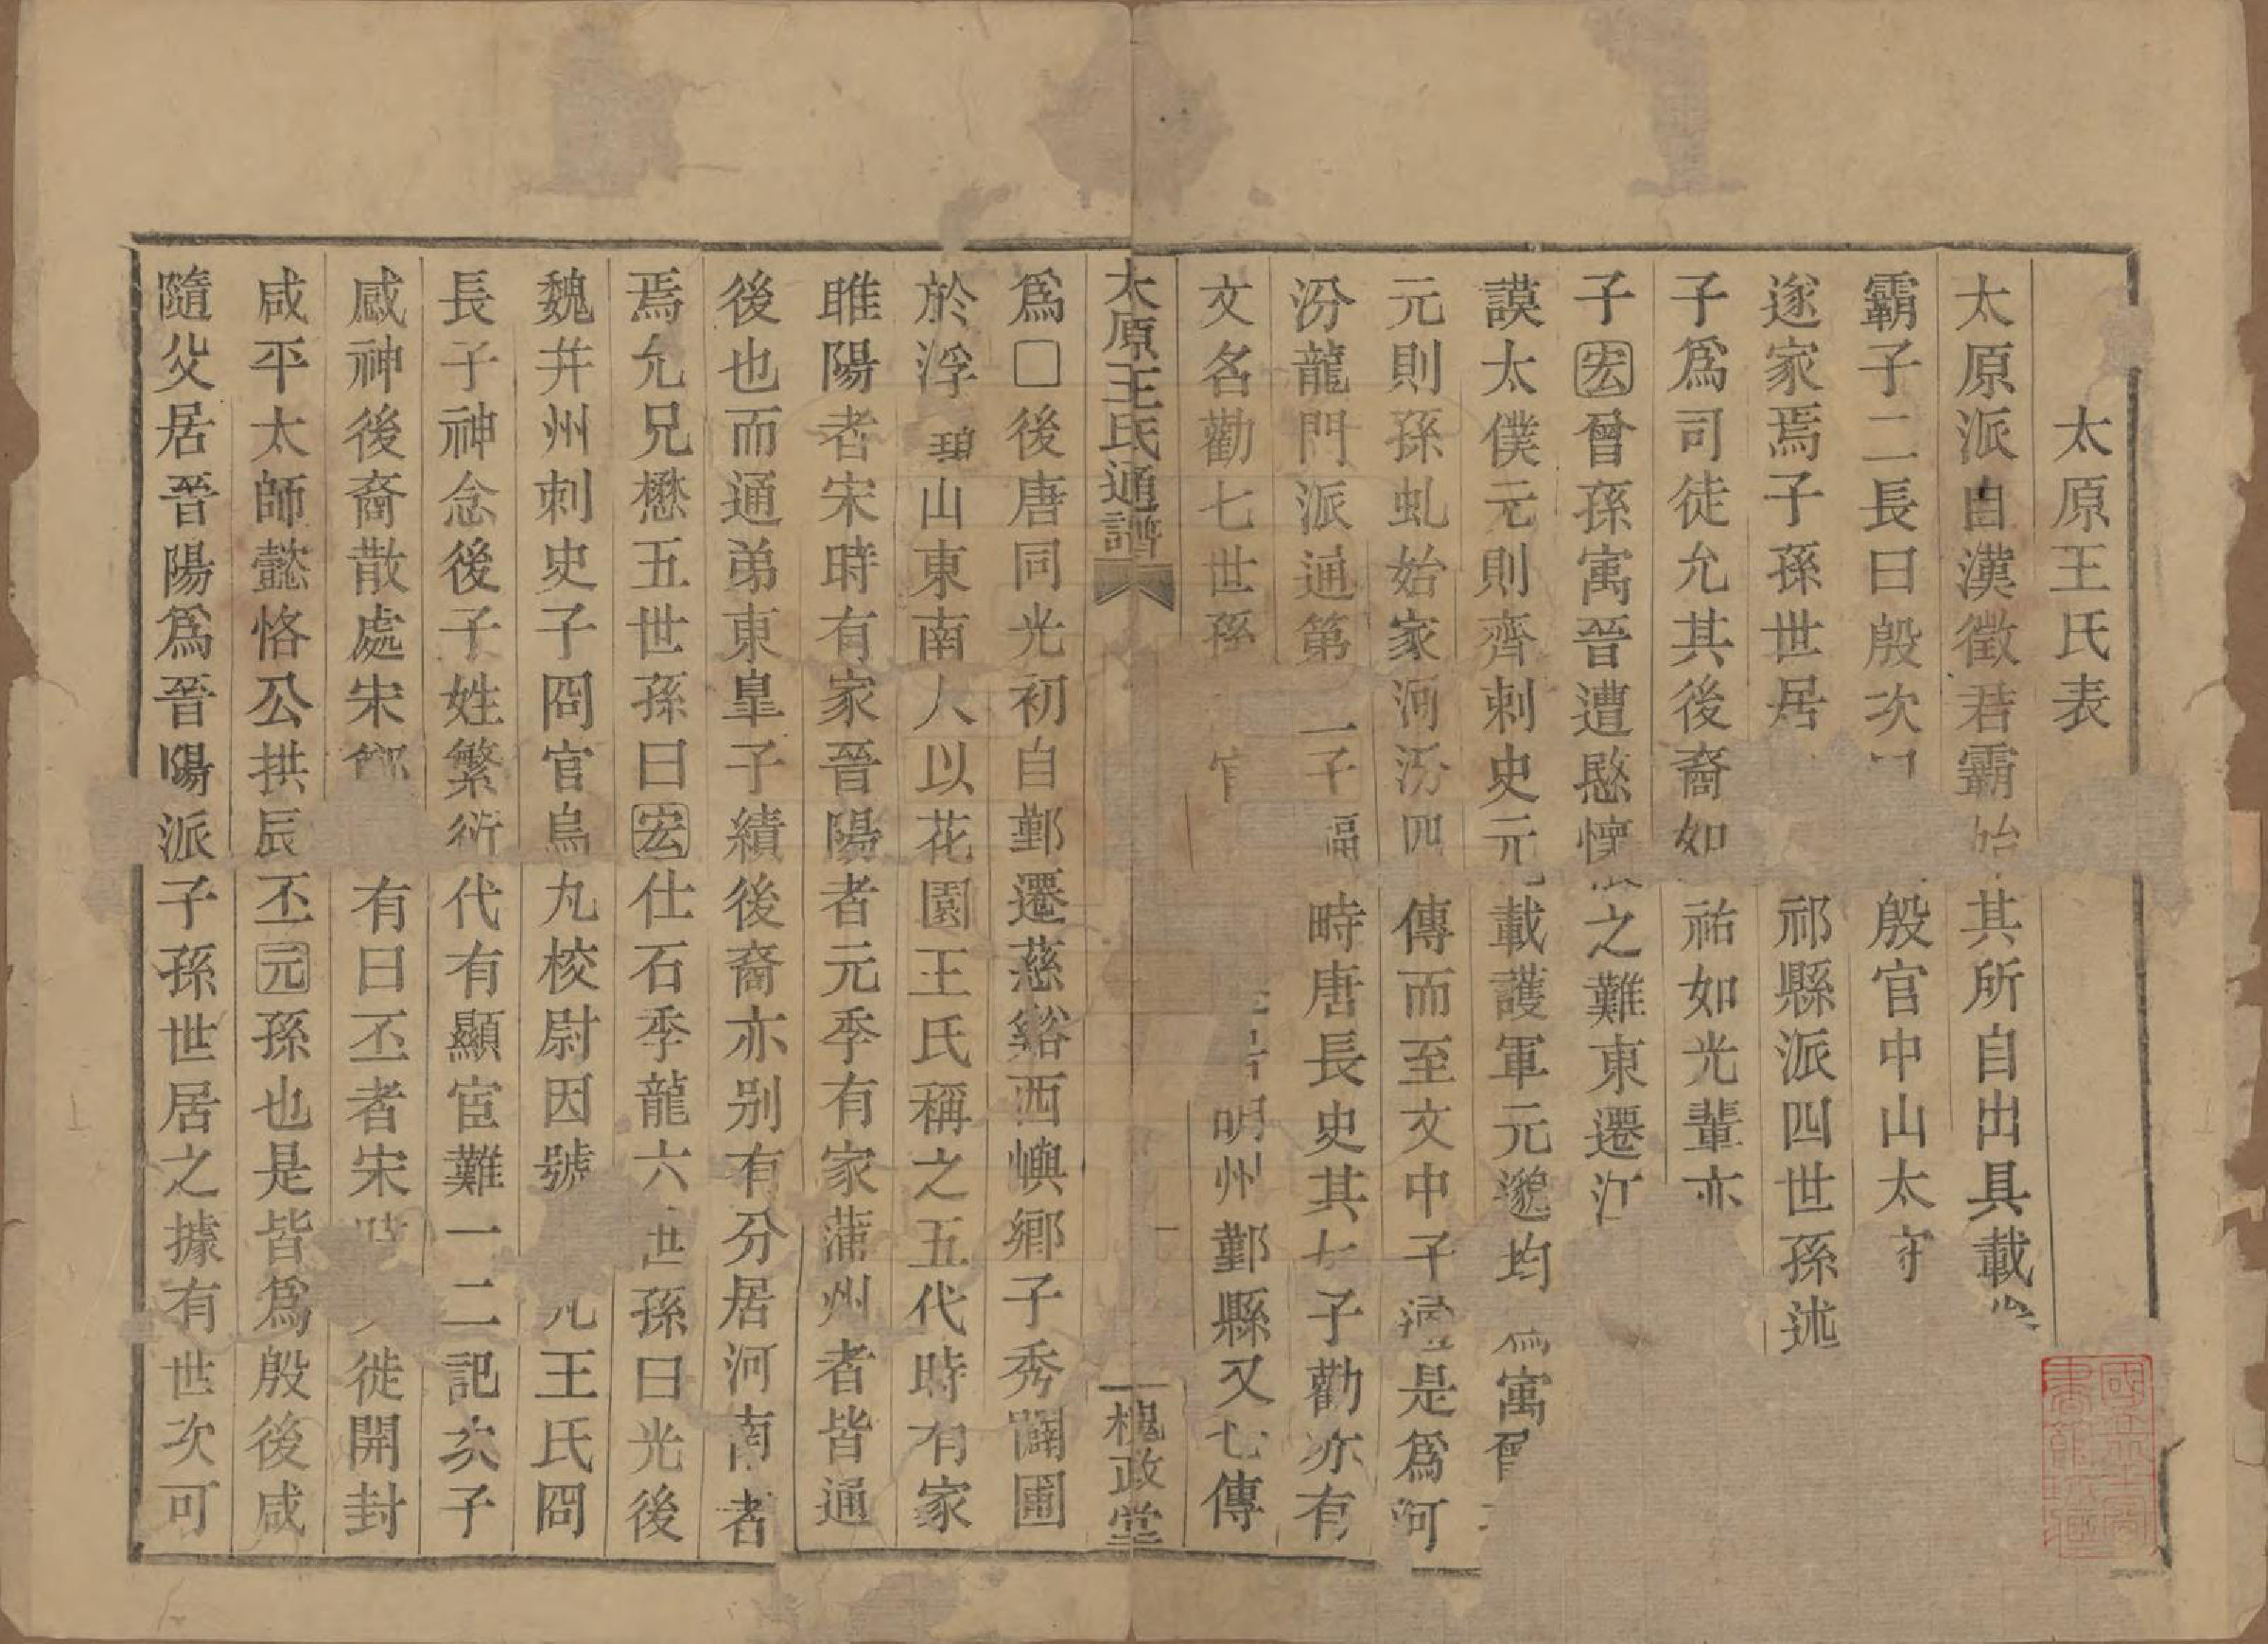 太原王氏表
太原派自漢徵君霸始其所自出具載
霸子二長曰殷次 殷官中山太守
遂家焉子孫世居 祁縣派四世孫述
子爲司徒允其後裔如 祐如光輩亦
子宏曾孫寓晉遭愍懷之難東遷江
謨太僕元則齊刺史元載護軍元邈均 寓
元則孫虬始家河汾四傳而至文中子通是爲河
汾龍門派通第二子福畤唐長史其七子勸亦有
文名勸七世孫 官 明州鄞縣又七傳
太原王氏通譜 一 槐政堂
爲□後唐同光初自鄞遷慈谿西嶼鄉子秀闢圃
於浮碧山東南人以花園王氏稱之五代時有家
睢陽者宋時有家晉陽者元季有家蒲州者皆通
後也而通弟東皐子績後裔亦别有分居河南者
焉允兄懋五世孫曰宏仕石季龍六世孫曰光後
魏并州刺史子冏官烏丸校尉因號 王氏冏
長子神念後子姓繁衍代有顯宦難一二記次子
感神後裔散處宋 有曰丕者宋 徙開封
咸平太師懿恪公拱辰丕元孫也是皆爲殷後咸
隨父居晉陽爲晉陽派子孫世居之據有世次可